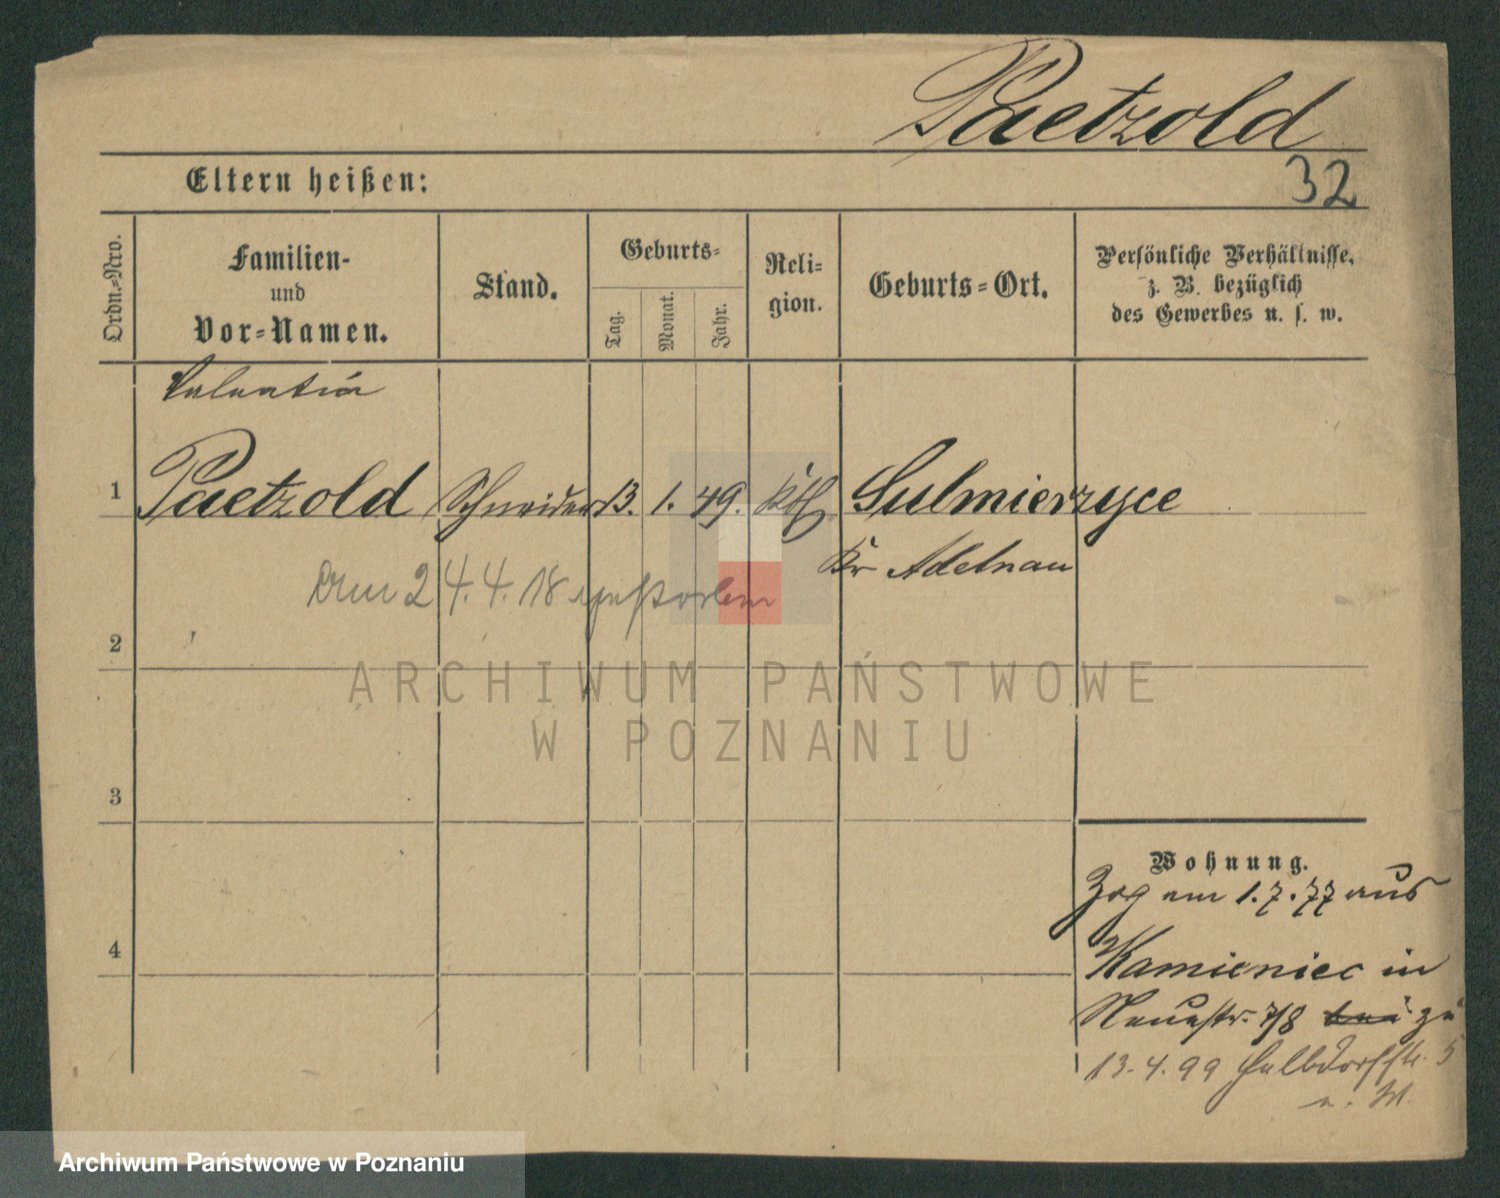 Paetzold
Eltern heißen:
32
Ordn.-Nro.
Familien-
und
Vor-Namen.
Stand.
Geburts-
Tag.
Monat.
Jahr.
Reli-
gion.
Geburts-Ort.
Persönliche Verhältnisse,
z. B. bezüglich
des Gewerbes u. s. w.
Valentin
1 Paetzold Schneider 13. 1. 49. kth Sulmierzyce
Kr Adelnau
am 24.4.18 gestorben
2
3
4
ARCHIWUM PAŃSTWOWE
W POZNANIU
Wohnung.
Zog am 1.7.77 aus
Kamieniec in
Neuestr. 7/8 bei zu
13.4.99 Halbdorfstr. 5
Archiwum Państwowe w Poznaniu